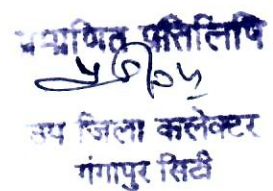 प्रमाणित प्रतिलिपि
उप जिला कलेक्टर
गंगापुर सिटी